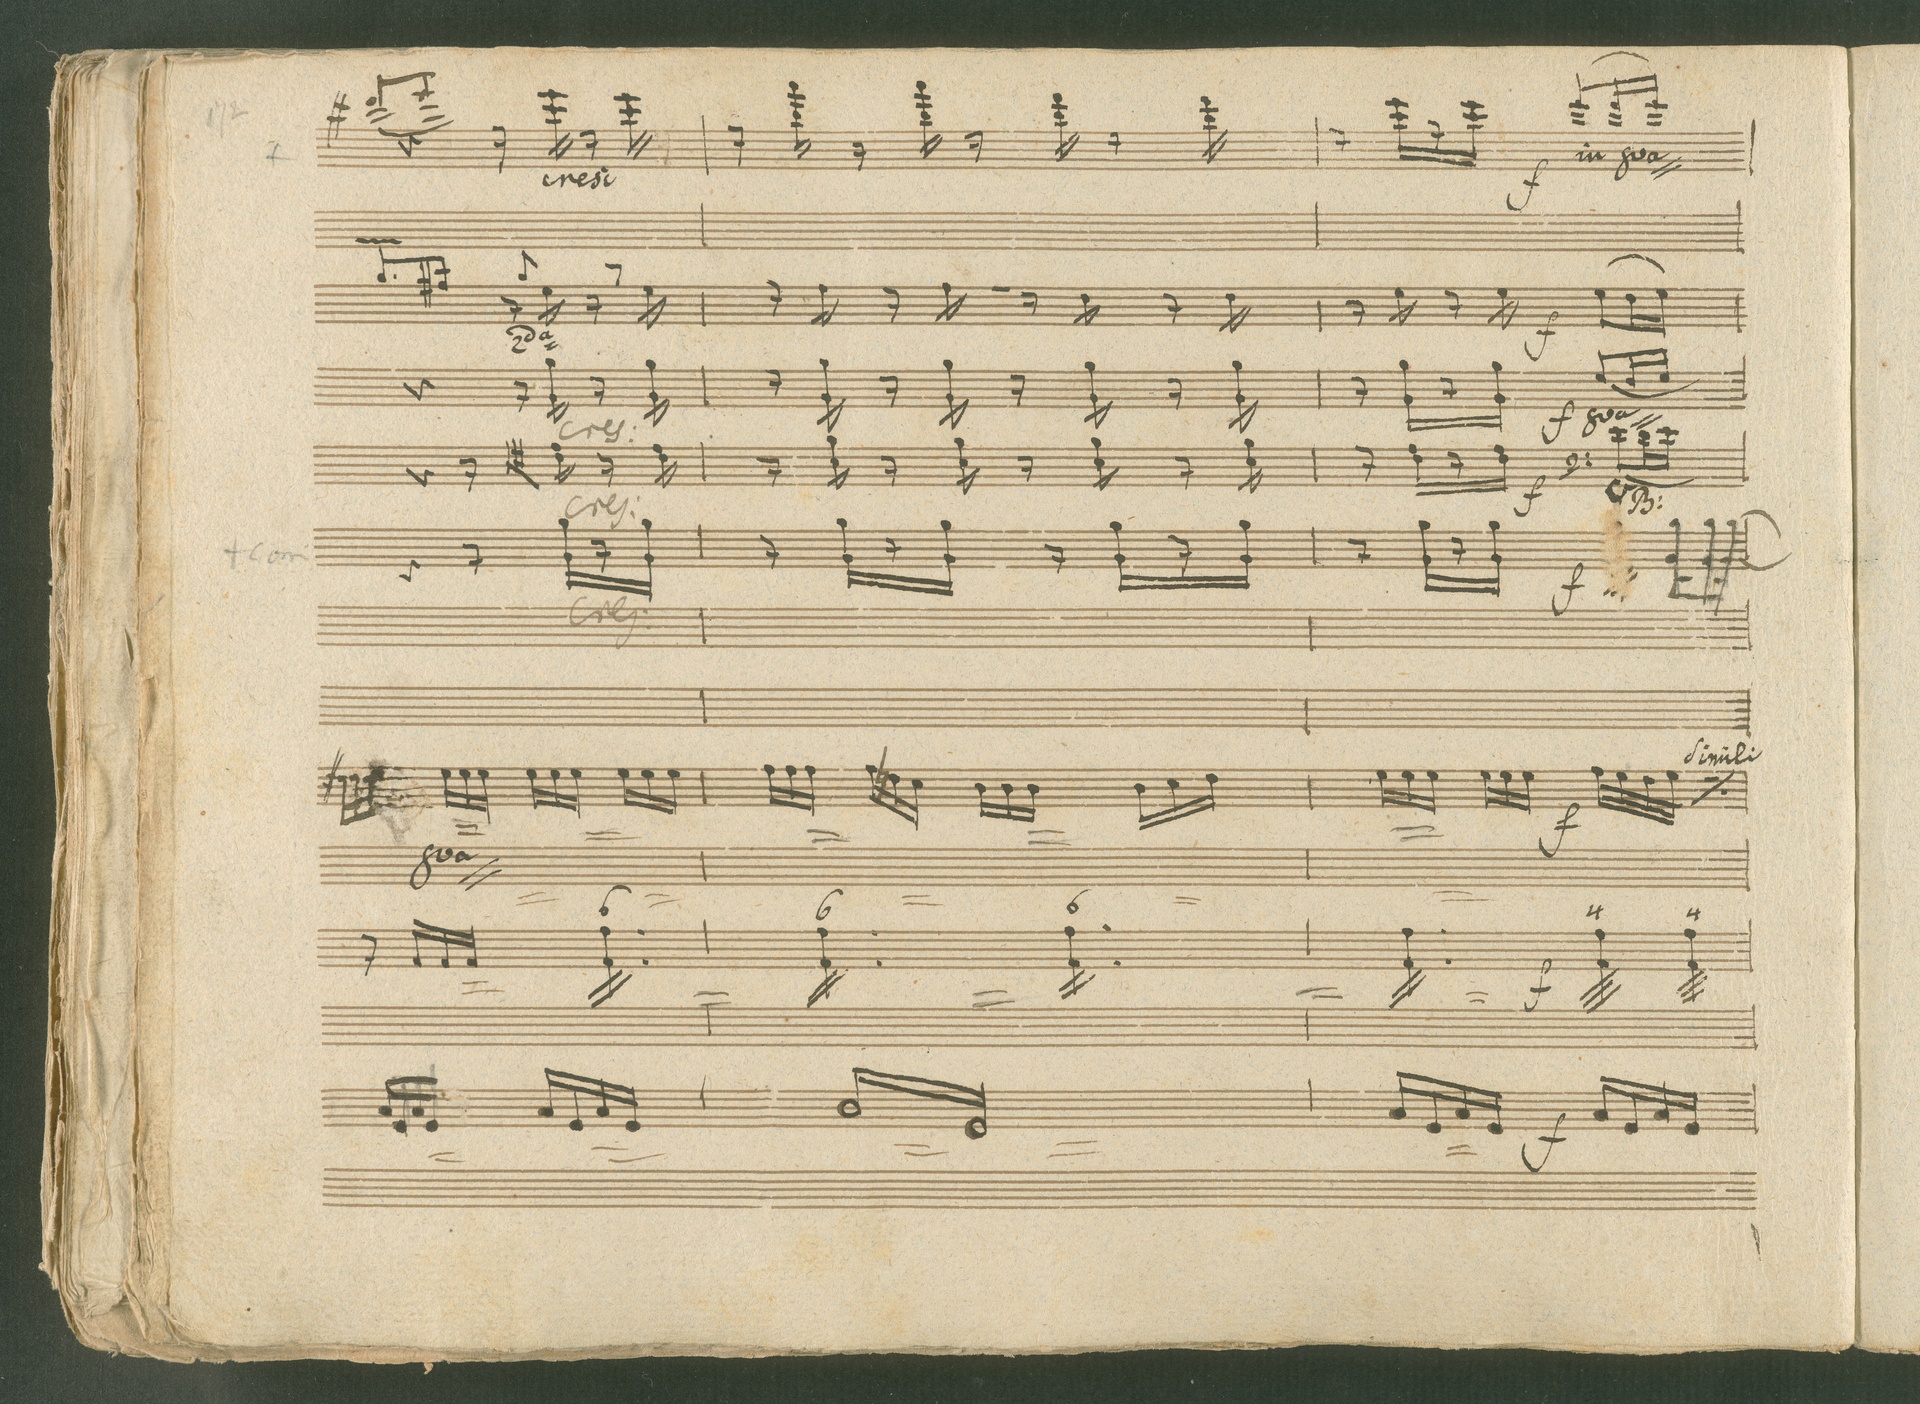 172
cresc
f
in 8va
2da
f
cres:
f 8va
cres:
f
B:
+ Corni
cres:
f
simili
f
8va
6 6 6 4 4
f
f